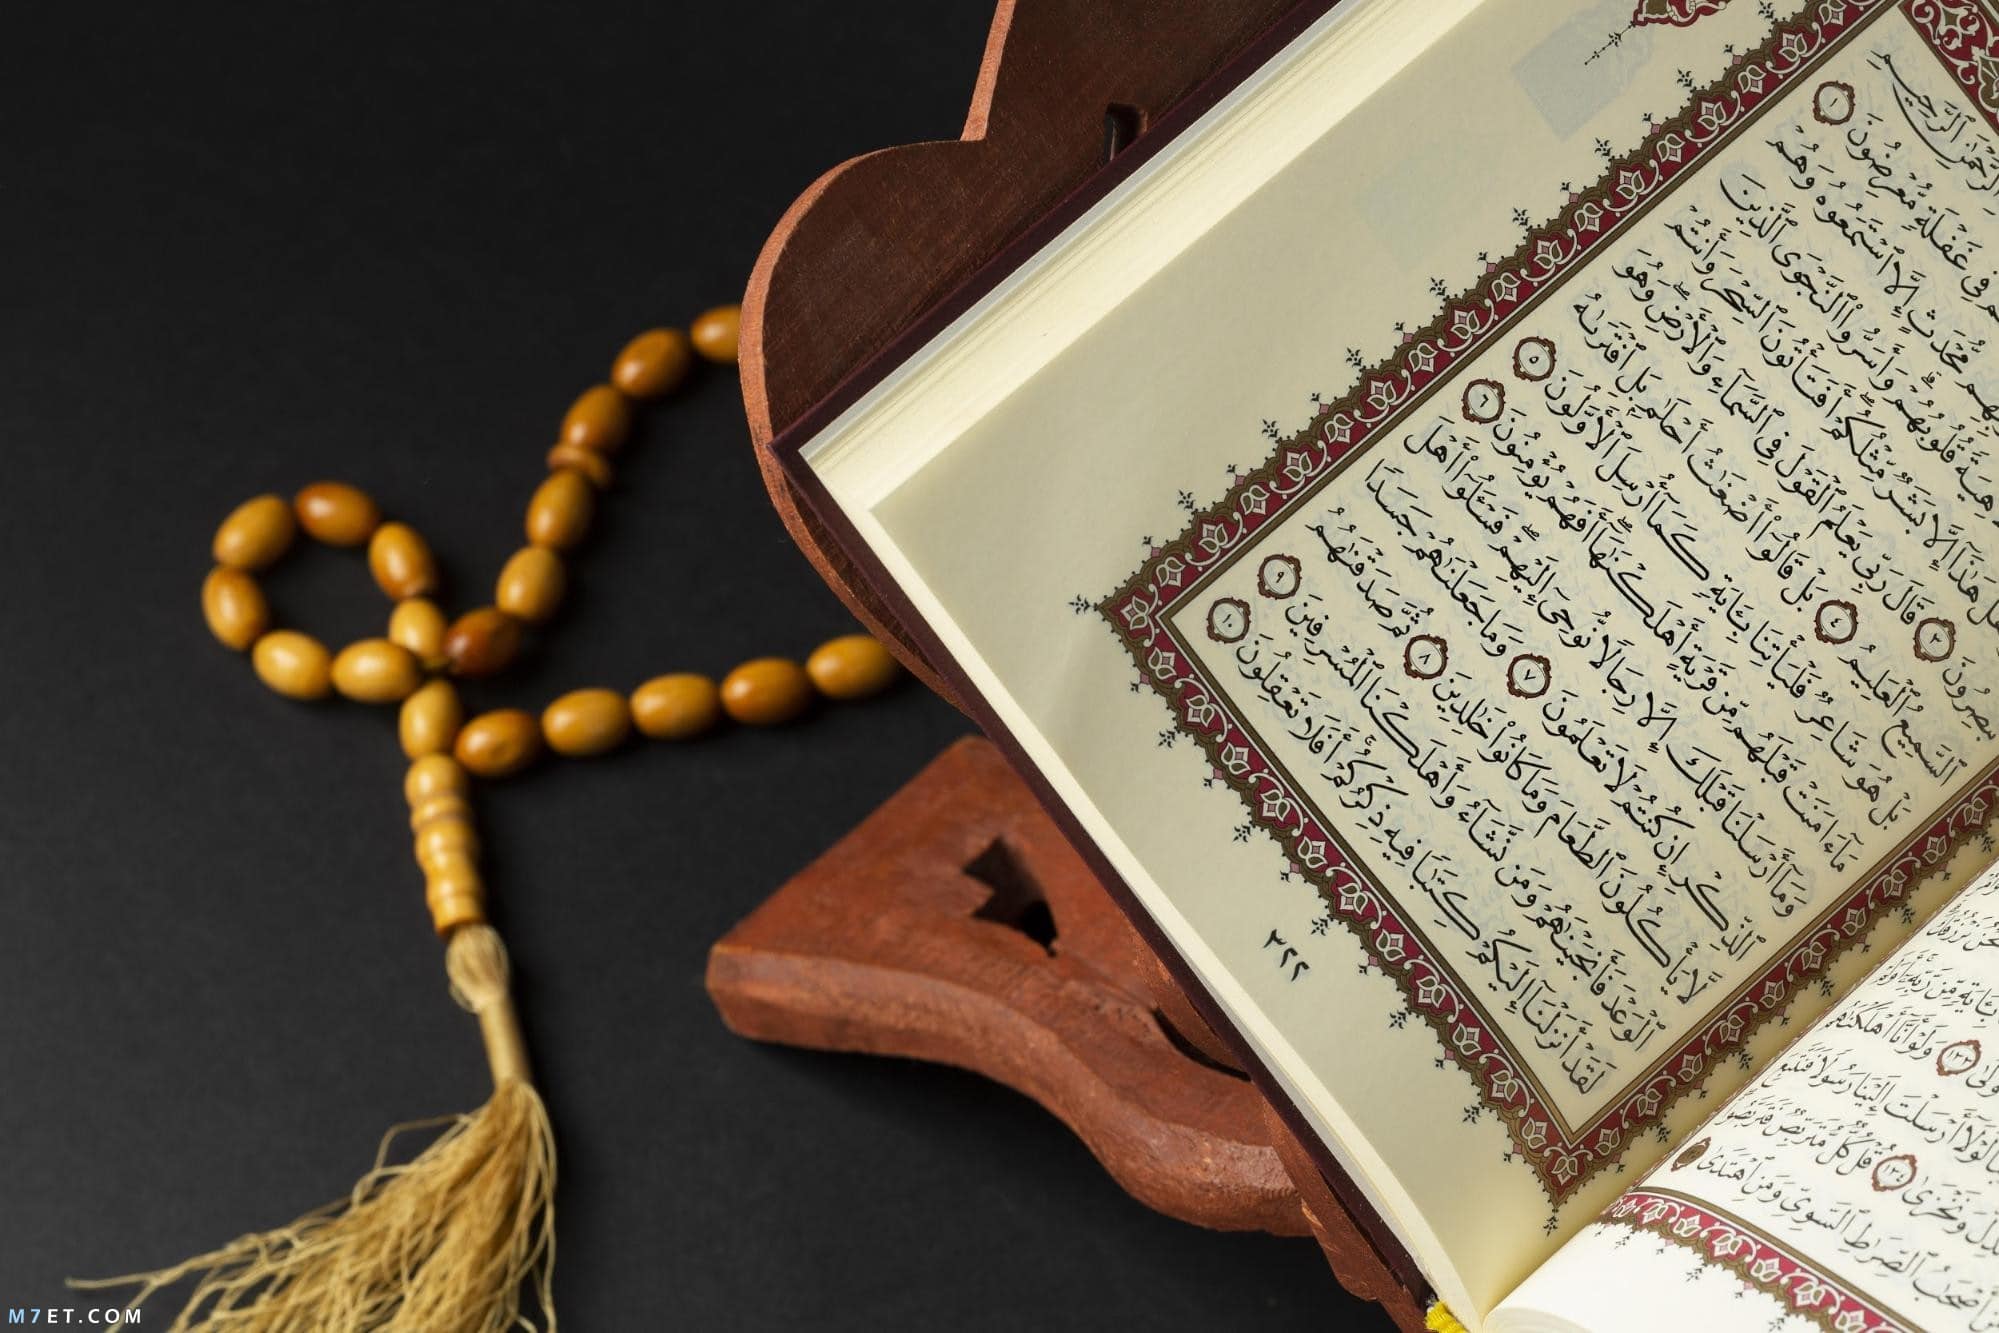 ٱلرَّحْمَٰنِ ٱلرَّحِيمِ
فِى غَفْلَةٍ مُّعْرِضُونَ ١
مُّحْدَثٍ إِلَّا ٱسْتَمَعُوهُ وَهُمْ
قُلُوبُهُمْ وَأَسَرُّوا۟ ٱلنَّجْوَى ٱلَّذِينَ
هَٰذَآ إِلَّا بَشَرٌ مِّثْلُكُمْ أَفَتَأْتُونَ ٱلسِّحْرَ وَأَنتُمْ
تُبْصِرُونَ ٣ قَالَ رَبِّى يَعْلَمُ ٱلْقَوْلَ فِى ٱلسَّمَآءِ وَٱلْأَرْضِ وَهُوَ
ٱلسَّمِيعُ ٱلْعَلِيمُ ٤ بَلْ قَالُوٓا۟ أَضْغَٰثُ أَحْلَٰمٍ بَلِ ٱفْتَرَىٰهُ
بَلْ هُوَ شَاعِرٌ فَلْيَأْتِنَا بِـَٔايَةٍ كَمَآ أُرْسِلَ ٱلْأَوَّلُونَ ٥
مَآ ءَامَنَتْ قَبْلَهُم مِّن قَرْيَةٍ أَهْلَكْنَٰهَآ أَفَهُمْ يُؤْمِنُونَ ٦
وَمَآ أَرْسَلْنَا قَبْلَكَ إِلَّا رِجَالًا نُّوحِىٓ إِلَيْهِمْ فَسْـَٔلُوٓا۟ أَهْلَ
ٱلذِّكْرِ إِن كُنتُمْ لَا تَعْلَمُونَ ٧ وَمَا جَعَلْنَٰهُمْ جَسَدًا
لَّا يَأْكُلُونَ ٱلطَّعَامَ وَمَا كَانُوا۟ خَٰلِدِينَ ٨ ثُمَّ صَدَقْنَٰهُمُ
ٱلْوَعْدَ فَأَنجَيْنَٰهُمْ وَمَن نَّشَآءُ وَأَهْلَكْنَا ٱلْمُسْرِفِينَ ٩
لَقَدْ أَنزَلْنَآ إِلَيْكُمْ كِتَٰبًا فِيهِ ذِكْرُكُمْ أَفَلَا تَعْقِلُونَ ١٠
٣٢٢
نَّحْنُ نَرْزُقُكَ
بِـَٔايَةٍ مِّن رَّبِّهِۦٓ أَوَلَمْ
١٣٣ وَلَوْ أَنَّآ أَهْلَكْنَٰهُم
لَوْلَآ أَرْسَلْتَ إِلَيْنَا رَسُولًا فَنَتَّبِعَ
وَنَخْزَىٰ ١٣٤ قُلْ كُلٌّ مُّتَرَبِّصٌ فَتَرَبَّصُوا۟
أَصْحَٰبُ ٱلصِّرَٰطِ ٱلسَّوِىِّ وَمَنِ ٱهْتَدَىٰ
M7ET.COM